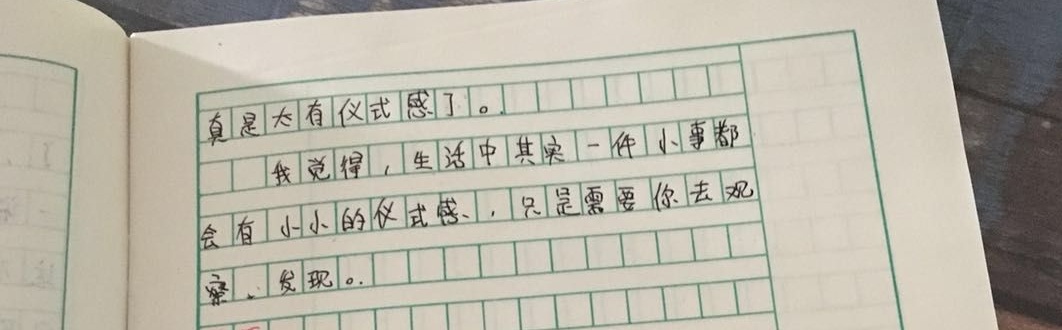 真是太有仪式感了。
我觉得，生活中其实一件小事都
会有小小的仪式感，只是需要你去观
察、发现。